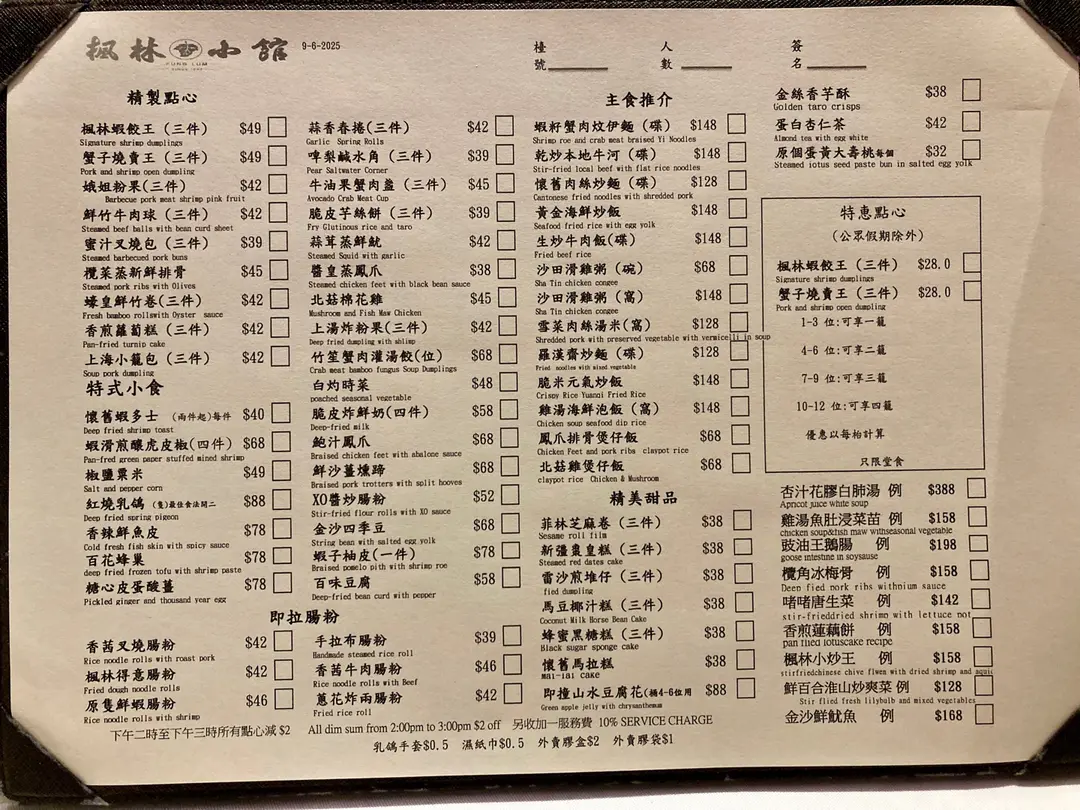 楓林小館 9-6-2025
FUNG LUM
檯號 人數 簽名
精製點心
楓林蝦餃王 (三件) $49
Signature shrimp dumplings
蟹子燒賣王 (三件) $49
Pork and shrimp open dumpling
娥姐粉果(三件) $42
Barbecue pork meat shrimp pink fruit
鮮竹牛肉球 (三件) $42
Steamed beef balls with bean curd sheet
蜜汁叉燒包 (三件) $39
Steamed barbecued pork buns
欖菜蒸新鮮排骨 $45
Steamed pork ribs with Olives
蠔皇鮮竹卷(三件) $42
Fresh bamboo rollswith Oyster sauce
香煎蘿蔔糕 (三件) $42
Pan-fried turnip cake
上海小籠包 (三件) $42
Soup pork dumpling
特式小食
懷舊蝦多士 (兩件起)每件 $40
Deep fried shrimp toast
蝦滑煎釀虎皮椒(四件) $68
Pan-fred green paper stuffed mined shrimp
椒鹽粟米 $49
Salt and pepper corn
紅燒乳鴿 (隻)最佳食法開二 $88
Deep fried spring pigeon
香辣鮮魚皮 $78
Cold fresh fish skin with spicy sauce
百花蜂巢 $78
deep fried frozen tofu with shrimp paste
糖心皮蛋酸薑 $78
Pickled ginger and thousand year egg
蒜香春捲(三件) $42
Garlic Spring Rolls
啤梨鹹水角 (三件) $39
Pear Saltwater Corner
牛油果蟹肉盞 (三件) $45
Avocado Crab Meat Cup
脆皮芋絲餅 (三件) $39
Fry Glutinous rice and taro
蒜茸蒸鮮魷 $42
Steamed Squid with garlic
醬皇蒸鳳爪 $38
Steamed chicken feet with black bean sauce
北菇棉花雞 $45
Mushroom and Fish Maw Chicken
上湯炸粉果(三件) $42
Deep fried dumpling with shlimp
竹笙蟹肉灌湯餃(位) $68
Crab meat bamboo fungus Soup Dumplings
白灼時菜 $48
poached seasonal vegetable
脆皮炸鮮奶(四件) $58
Deep-fried milk
鮑汁鳳爪 $68
Braised chicken feet with abalone sauce
鮮沙薑燻蹄 $68
Braised pork trotters with split hooves
XO醬炒腸粉 $52
Stir-fried flour rolls with XO sauce
金沙四季豆 $68
String bean with salted egg yolk
蝦子柚皮(一件) $78
Braised pomelo pith with shrimp roe
百味豆腐 $58
Deep-fried bean curd with pepper
即拉腸粉
香茜叉燒腸粉 $42
Rice noodle rolls with roast pork
楓林得意腸粉 $42
Fried dough noodle rolls
原隻鮮蝦腸粉 $46
Rice noodle rolls with shrimp
手拉布腸粉 $39
Handmade steamed rice roll
香茜牛肉腸粉 $46
Rice noodle rolls with Beef
蔥花炸兩腸粉 $42
Fried rice roll
主食推介
蝦籽蟹肉炆伊麵 (碟) $148
Shrimp roe and crab meat braised Yi Noodles
乾炒本地牛河 (碟) $148
Stir-fried local beef with flat rice noodles
懷舊肉絲炒麵 (碟) $128
Cantonese fried noodles with shredded pork
黃金海鮮炒飯 $148
Seafood fried rice with egg yolk
生炒牛肉飯(碟) $148
Fried beef rice
沙田滑雞粥 (碗) $68
Sha Tin chicken congee
沙田滑雞粥 (窩) $148
Sha Tin chicken congee
雪菜肉絲湯米(窩) $128
Shredded pork with preserved vegetable with vermicelli in soup
羅漢齋炒麵 (碟) $128
Fried noodles with mixed vagetable
脆米元氣炒飯 $148
Crispy Rice Yuanqi Fried Rice
雞湯海鮮泡飯 (窩) $148
Chicken soup seafood dip rice
鳳爪排骨煲仔飯 $68
Chicken Feet and pork ribs claypot rice
北菇雞煲仔飯 $68
claypot rice Chicken & Mushroom
精美甜品
菲林芝麻卷 (三件) $38
Sesame roll film
新疆棗皇糕 (三件) $38
Steamed red dates cake
雷沙煎堆仔 (三件) $38
fied dumpling
馬豆椰汁糕 (三件) $38
Coconut Milk Horse Bean Cake
蜂蜜黑糖糕 (三件) $38
Black sugar sponge cake
懷舊馬拉糕 $38
Mai-lai cake
即撞山水豆腐花(桶4-6位用 $88
Green apple jelly with chrysanthem
金絲香芋酥 $38
Golden taro crisps
蛋白杏仁茶 $42
Almond tea with egg white
原個蛋黃大壽桃每個 $32
Steamed lotus seed paste bun in salted egg yolk
特惠點心
(公眾假期除外)
楓林蝦餃王 (三件) $28.0
Signature shrimp dumplings
蟹子燒賣王 (三件) $28.0
Pork and shrimp open dumpling
1-3 位:可享一籠
4-6 位:可享二籠
7-9 位:可享三籠
10-12 位:可享四籠
優惠以每枱計算
只限堂食
杏汁花膠白肺湯 例 $388
Apricot juice white soup
雞湯魚肚浸菜苗 例 $158
chicken soup&fish maw withseasonal vegetable
豉油王鵝腸 例 $198
goose intestine in soysause
欖角冰梅骨 例 $158
Deep fied pork ribs withpium sauce
啫啫唐生菜 例 $142
stir-frieddried shrimp with lettuce pot
香煎蓮藕餅 例 $158
pan fied lotuscake recipe
楓林小炒王 例 $158
stirfriedchinese chive flwen with dried shrimp and squic
鮮百合淮山炒爽菜 例 $128
Stir flied fresh lilybulb and mixed vegetables
金沙鮮魷魚 例 $168
下午二時至下午三時所有點心減 $2 All dim sum from 2:00pm to 3:00pm $2 off 另收加一服務費 10% SERVICE CHARGE
乳鴿手套$0.5 濕紙巾$0.5 外賣膠盒$2 外賣膠袋$1